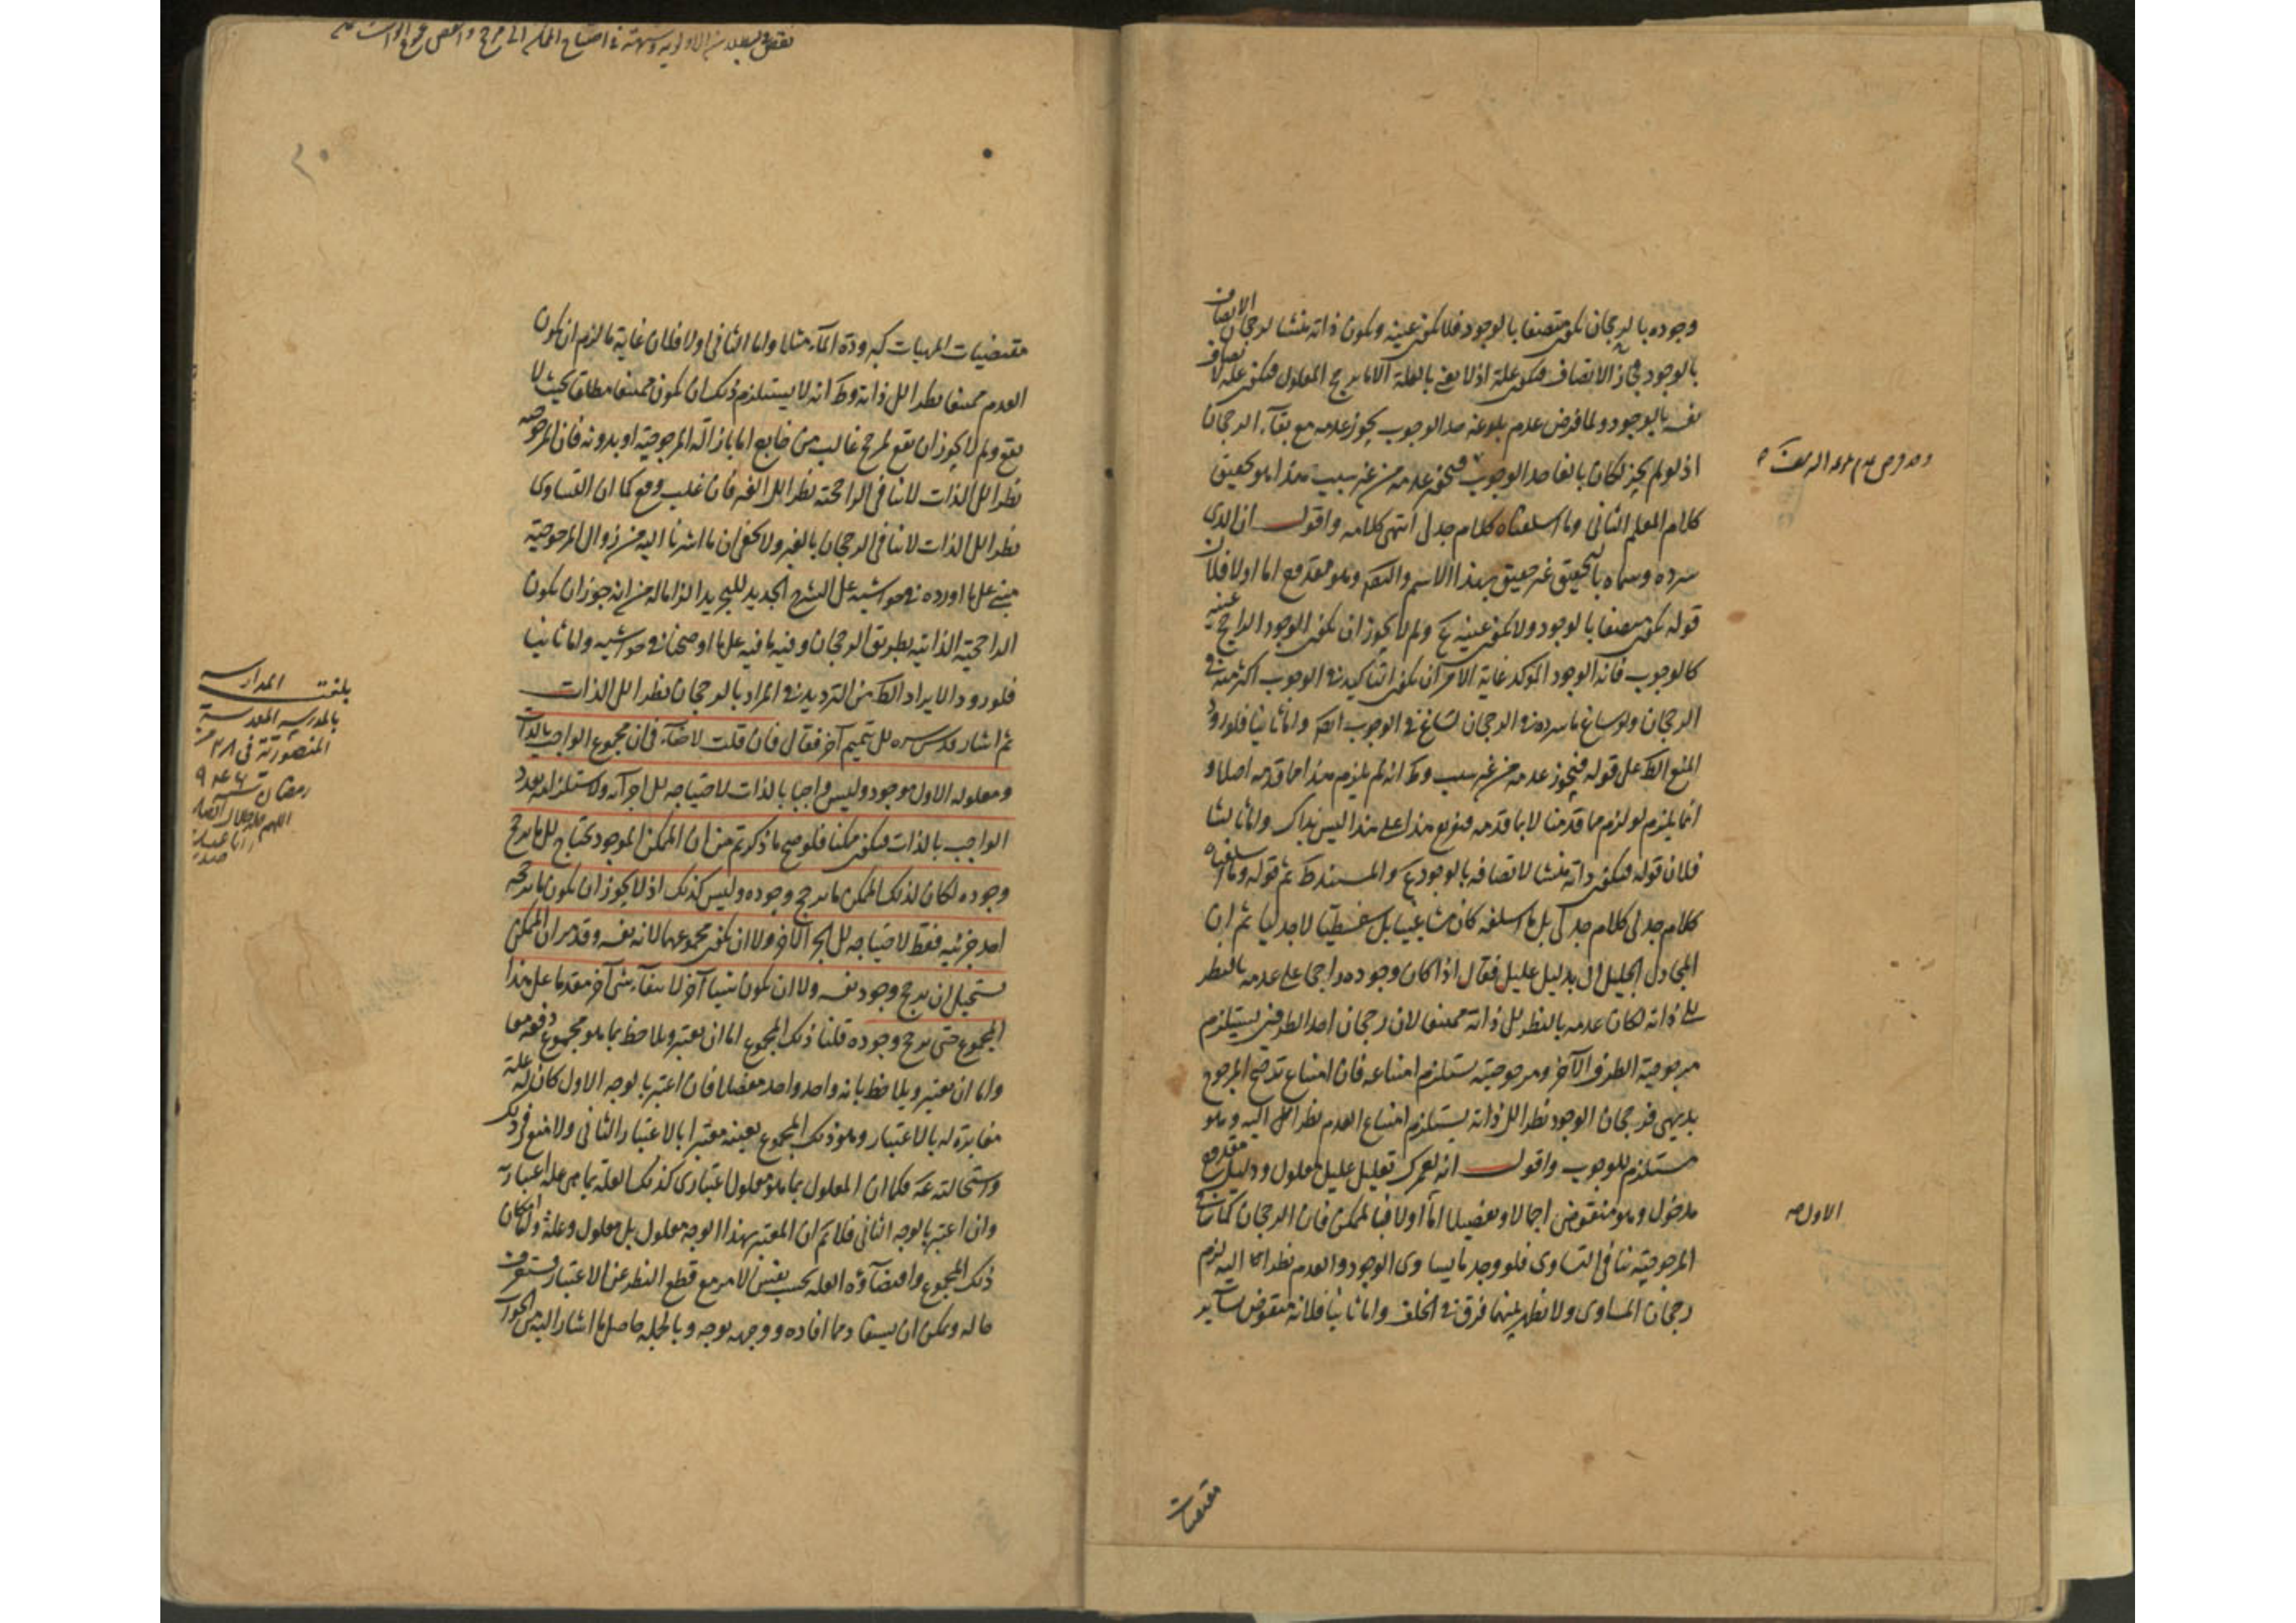 وجوده بالرجحان يكون متصفا بالوجود فلا يكون عينه ويكون ذاته منشا لرجحان الاتصاف
بالوجود الاتصاف فيكون علة اذ لا نعنى بالعلة الا ما يرجح المعلول فيكون علة لاتصاف
نفسه بالوجود ولما فرض عدم بلوغه حد الوجوب يجوز عدمه مع بقاء الرجحان
اذ لو لم يجز لكان بالغا حد الوجوب فيجوز عدمه من غير سبب هذا هو تحقيق
كلام المعلم الثانى وما اسلفناه كلام جدلى انتهى كلامه واقول ان الذى
سرده وسماه بالتحقيق غير حقيق بهذا الاسم والنعت وهو مقدوح اما اولا فلان
قوله يكون متصفا بالوجود ولا يكون عينه مم ولم لا يجوز ان يكون الوجود الراجح عينه
كالوجوب فانه الوجود المؤكد غاية الامر ان يكون التاكيد فى الوجوب اكثر منه فى
الرجحان ولو ساغ ما سرده فى الرجحان لساغ فى الوجوب ايضا واما ثانيا فلورود
المنع الظ على قوله فيجوز عدمه من غير سبب وظ انه لم يلزم هذا مما قدمه اصلا و
انما يلزم لو لزم مما قدمنا لا بما قدمه فتفريع هذا على هذا ليس بذاك واما ثالثا
فلان قوله فيكون ذاته منشا لاتصافه بالوجود مم والمستند ظ ثم قوله وما اسلفناه
كلام جدلى كلام جدلى بل ما اسلفه كان مشاغبيا بل سفسطيا لا جدليا ثم ان
المجادل الجليل اتى بدليل عليل فقال اذا كان وجوده راجحا على عدمه بالنظر
الى ذاته لكان عدمه بالنظر الى ذاته ممتنعا لان رجحان احد الطرفين يستلزم
مرجوحية الطرف الآخر ومرجوحيته يستلزم امتناعه فان امتناع ترجح المرجوح
بديهى فرجحان الوجود نظرا الى ذاته يستلزم امتناع العدم نظرا اليه وهو
مستلزم للوجوب واقول انه لعمرك تعليل عليل معلول ودليل مقدوح
مدخول وهو منقوض اجمالا وتفصيلا اما اولا فبالممكن فان الرجحان كما ينافى
المرجوحية ينافى التساوى فلو وجد ما يساوى الوجود والعدم نظرا اليه لزم
رجحان المساوى ولا يظهر بينهما فرق فى الخلف واما ثانيا فلانه منقوض بساير
الاول صح
مقتضيات
مقتضيات المهيات كبرودة الماء مثلا واما الثانى اولا فلان غاية ما لزم ان يكون
العدم ممتنعا نظرا الى ذاته وظ انه لا يستلزم ذلك ان يكون ممتنعا مطلقا بحيث لا
يقع ولم لا يجوز ان يقع لمرجح غالب من خارج اما بازالة المرجوحية او بدونه فان المرجوحية
نظرا الى الذات لا ينافى الراجحية نظرا الى الغير فان غلب وقع كما ان التساوى
نظرا الى الذات لا ينافى الرجحان بالغير ولا يخفى ان ما اشرنا اليه من زوال المرجوحية
مبنى على ما اورده فى حواشيه على الشرح الجديد للتجريد الزاما له من انه جوز ان يكون
الراجحية الذاتية بطريق الرجحان وفيه ما فيه على ما اوضحنا فى حواشيه واما ثانيا
فلورود الايراد الظ من الترديد فى المراد بالرجحان نظرا الى الذات
ثم اشار قدس سره الى تتميم آخر فقال فان قلت لا خفاء فى ان مجموع الواجب بالذات
ومعلوله الاول موجود وليس واجبا بالذات لاحتياجه الى اجزائه ولاستلزامه تعدد
الواجب بالذات فيكون ممكنا فلو صح ما ذكرتم من ان الممكن الموجود يحتاج الى ما يرجح
وجوده لكان لذلك الممكن ما يرجح وجوده وليس كذلك اذ لا يجوز ان يكون ما يرجحه
احد جزئيه فقط لاحتياجه الى الجزء الآخر ولا ان يكون مجموعهما لانه نفسه وقد مر ان الممكن
يستحيل ان يرجح وجود نفسه ولا ان يكون شيئا آخر لانتفاء شئ آخر مقدما على هذا
المجموع حتى يرجح وجوده قلنا ذلك المجموع اما ان يعتبر ويلاحظ بما هو مجموع دفعة معا
واما ان يعتبر ويلاحظ بانه واحد واحد مفصلا فان اعتبر بالوجه الاول كان له علة
مغايرة له بالاعتبار وهو ذلك المجموع بعينه معتبرا بالاعتبار الثانى ولا منع فى ذلك
واستحالته مم فكما ان المعلول بما هو معلول اعتبارى كذلك العلة بما هى علة اعتبارية
وان اعتبر بالوجه الثانى فلا نم ان المعتبر بهذا الوجه معلول بل معلول وعلة وامكان
ذلك المجموع واقتضاؤه العلة بحسب نفس الامر مع قطع النظر عن الاعتبار ستعرف
حاله ويمكن ان يستفاد مما افاده ووجهه بوجه وبالجملة حاصل ما اشار اليه من الجواب
بلغت المدارسه
بالمدرسة المقدسة
المنصورية فى ٢٨ من
رمضان سنة
اللهم